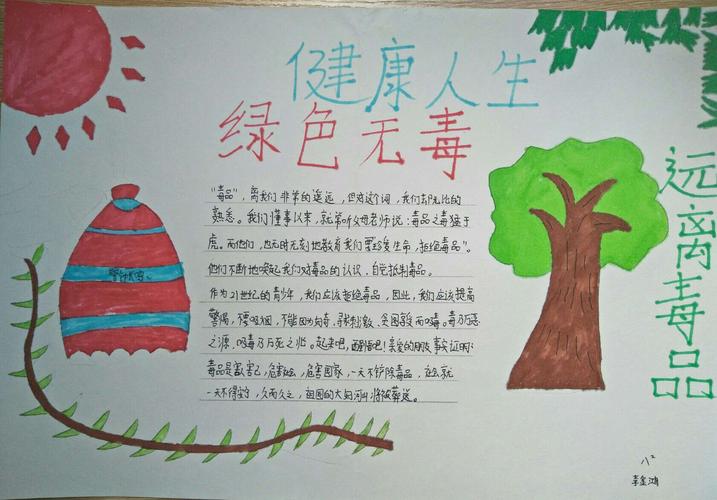 健康人生
绿色无毒
远离毒品
警钟长鸣
"毒品",离我们非常的遥远,但对这个词,我们却无比的
熟悉。我们懂事以来,就常听父母老师说:毒品之毒猛于
虎。而他们,也无时无刻地教育我们要珍爱生命,拒绝毒品"。
他们不断地唤起我们对毒品的认识,自觉抵制毒品。
作为21世纪的青少年,我们应该拒绝毒品,因此,我们应该提高
警惕,不要吸烟,不能因为好奇、寻求刺激、贪图享受而吸毒。毒乃万恶
之源,吸毒乃万死之兆。起来吧,醒悟吧!亲爱的朋友,事实证明:
毒品是害己,危害社会,危害国家,一天不铲除毒品,社会就
一天不得安宁,久而久之,祖国的大好河山将被葬送。
八2
李金鸿